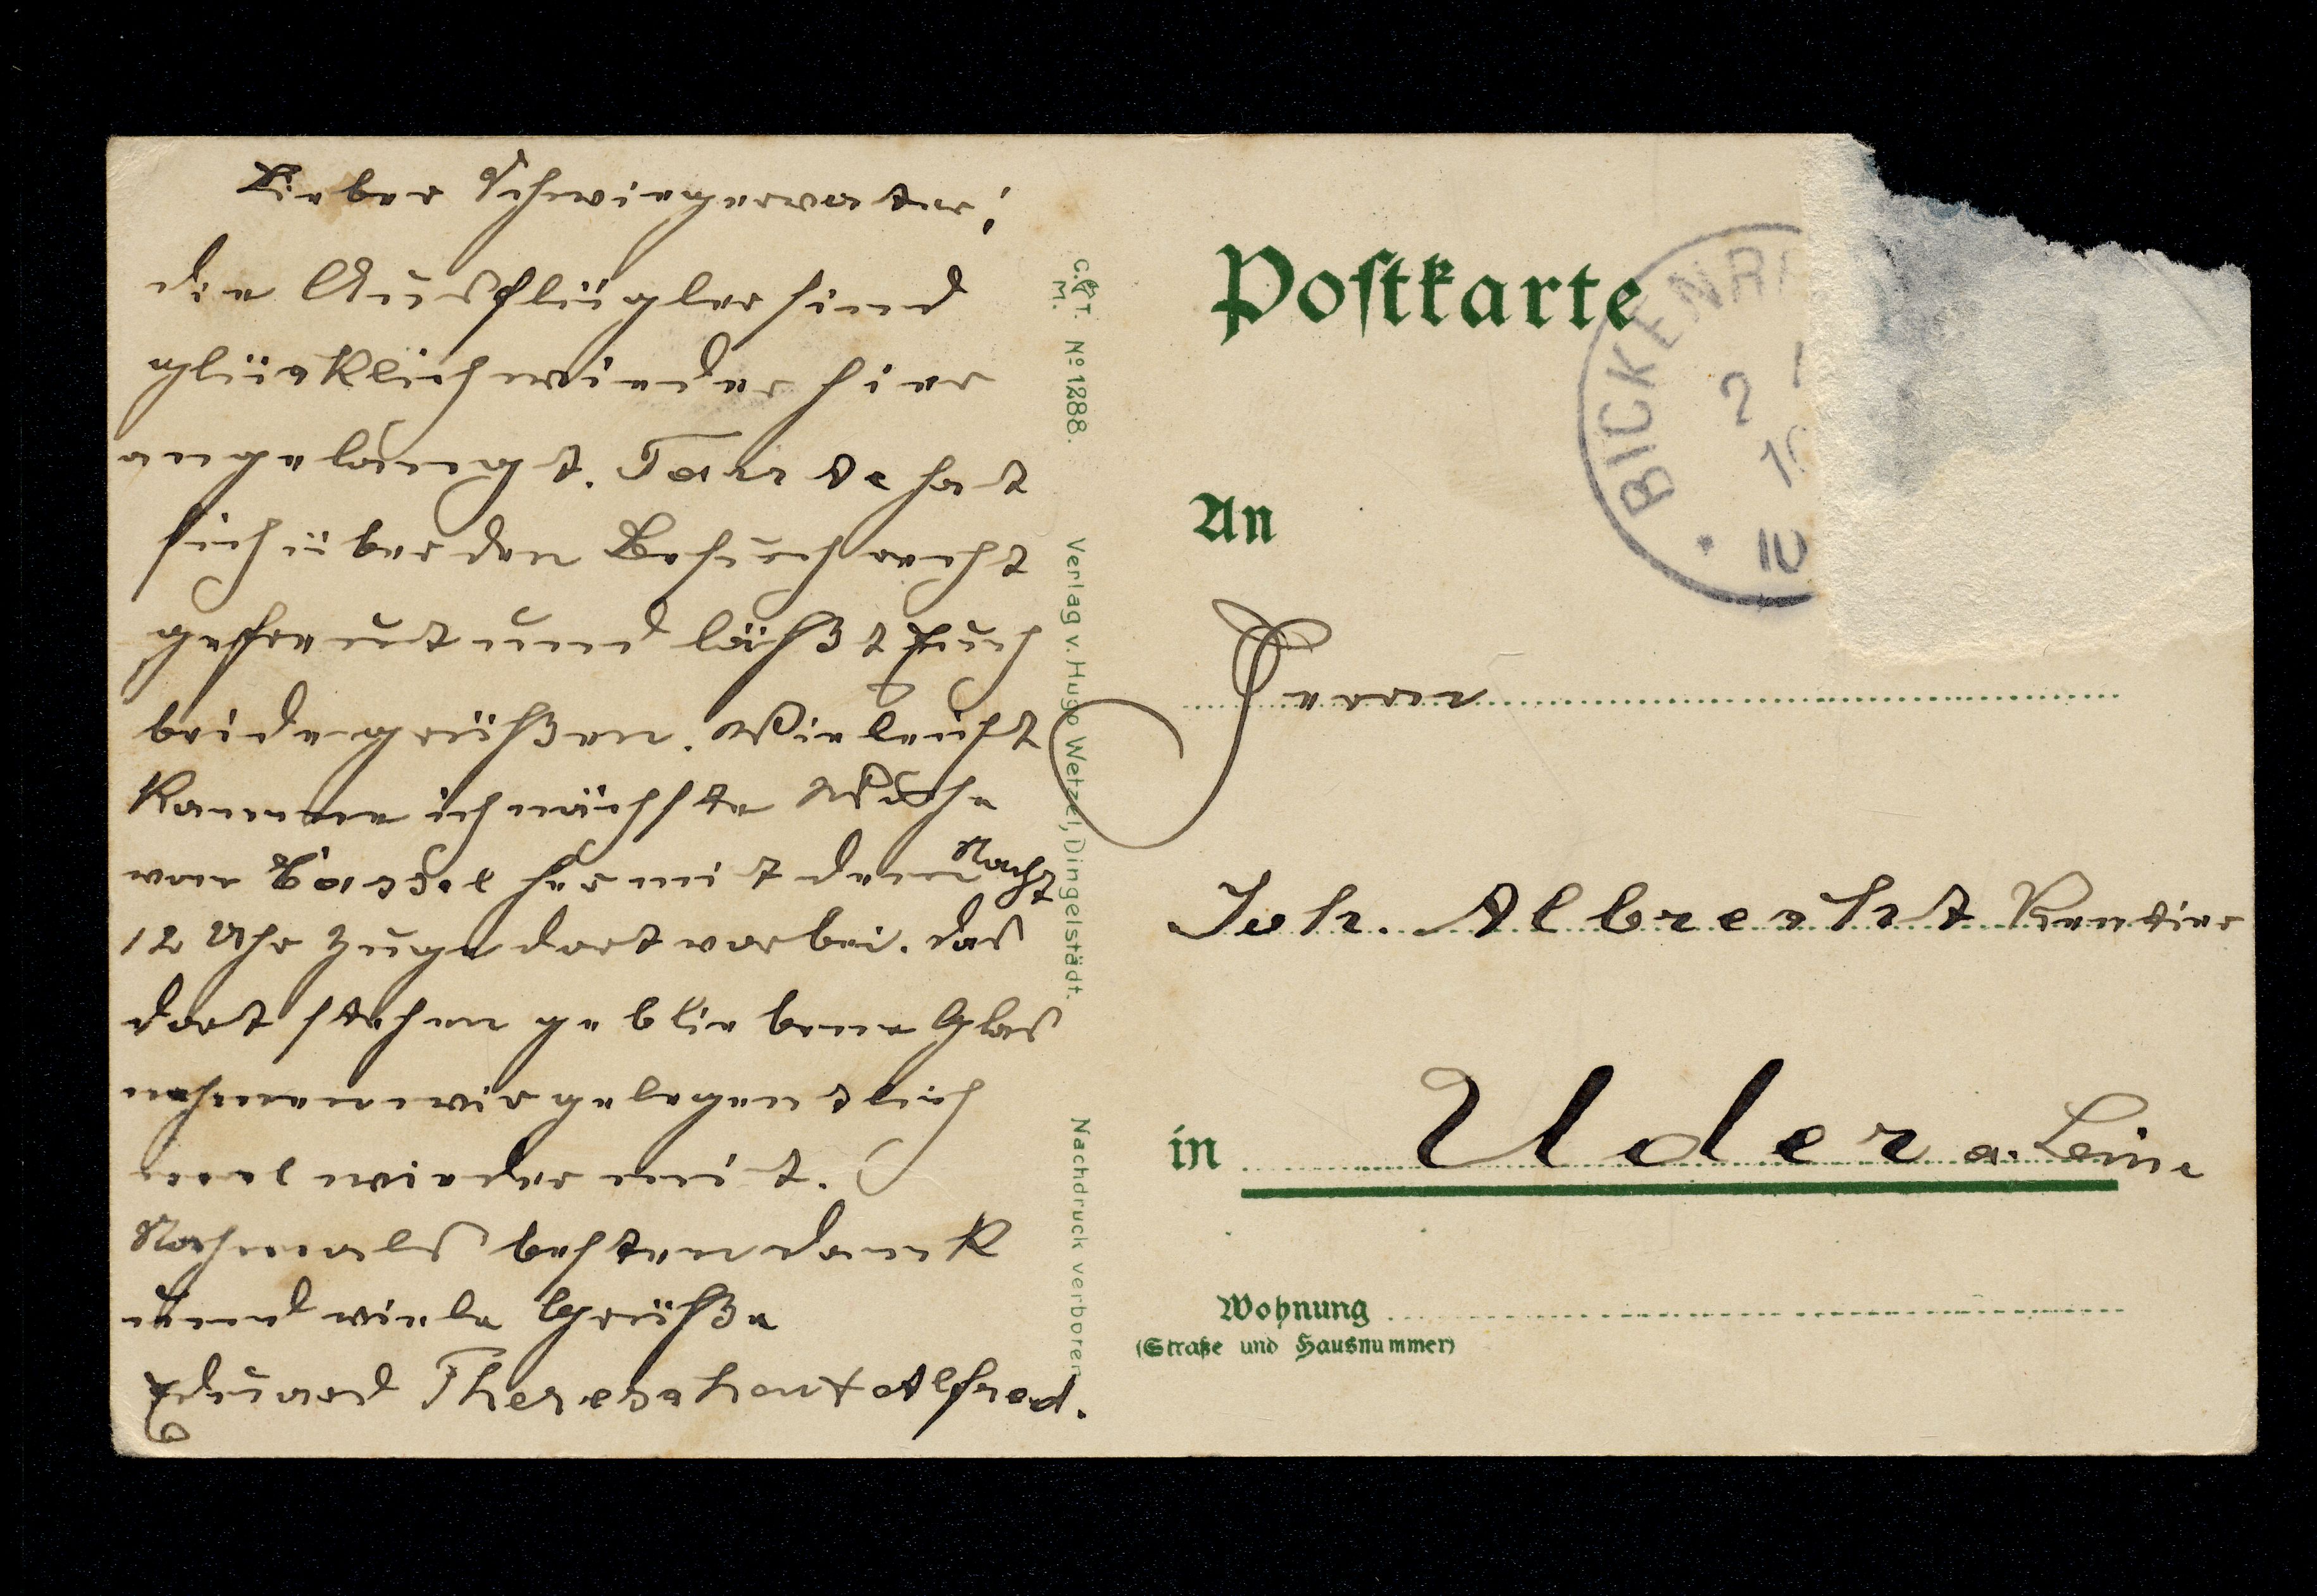 Lieber Schwiegervater!
die Ausflügler sind
glücklich wieder hier
angelangt. Tante hat
sich über den Besuch recht
gefreut und läßt Euch
beide grüßen. Vieleicht
komme ich nächste Woche
von Cassel her mit dem Nacht
12 Uhr Zuge dort vorbei. das
dort stehen gebliebene Glas
nehmen wir gelegentlich
mal wieder mit.
Nochmals besten dank
und viele Grüße
Eduard Theres Alfred.
C. & T.
M.
No 1288.
Verlag v. Hugo Wetzel, Dingelstädt.
Nachdruck verboten.
Postkarte
BICKENRI
2
10
An
Herrn
Joh. Albrecht Rentier
in Uder a. Leine
Wohnung
(Straße und Hausnummer)